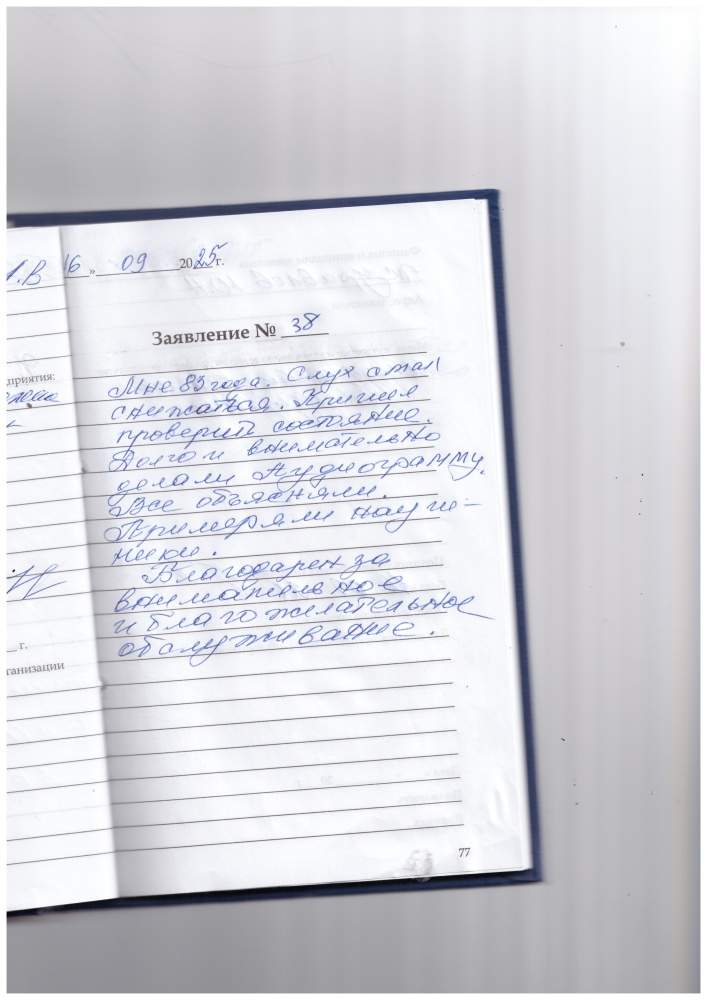 16 » 09 2025г.
Заявление № 38
дприятия:
Мне 83 года. Слух стал
снижаться. Пришел
проверить состояние.
Долго и внимательно
делали Аудиограмму.
Все объясняли.
Примеряли науш-
ники.
Благодарен за
внимательное
и благожелательное
обслуживание.
г.
ганизации
77